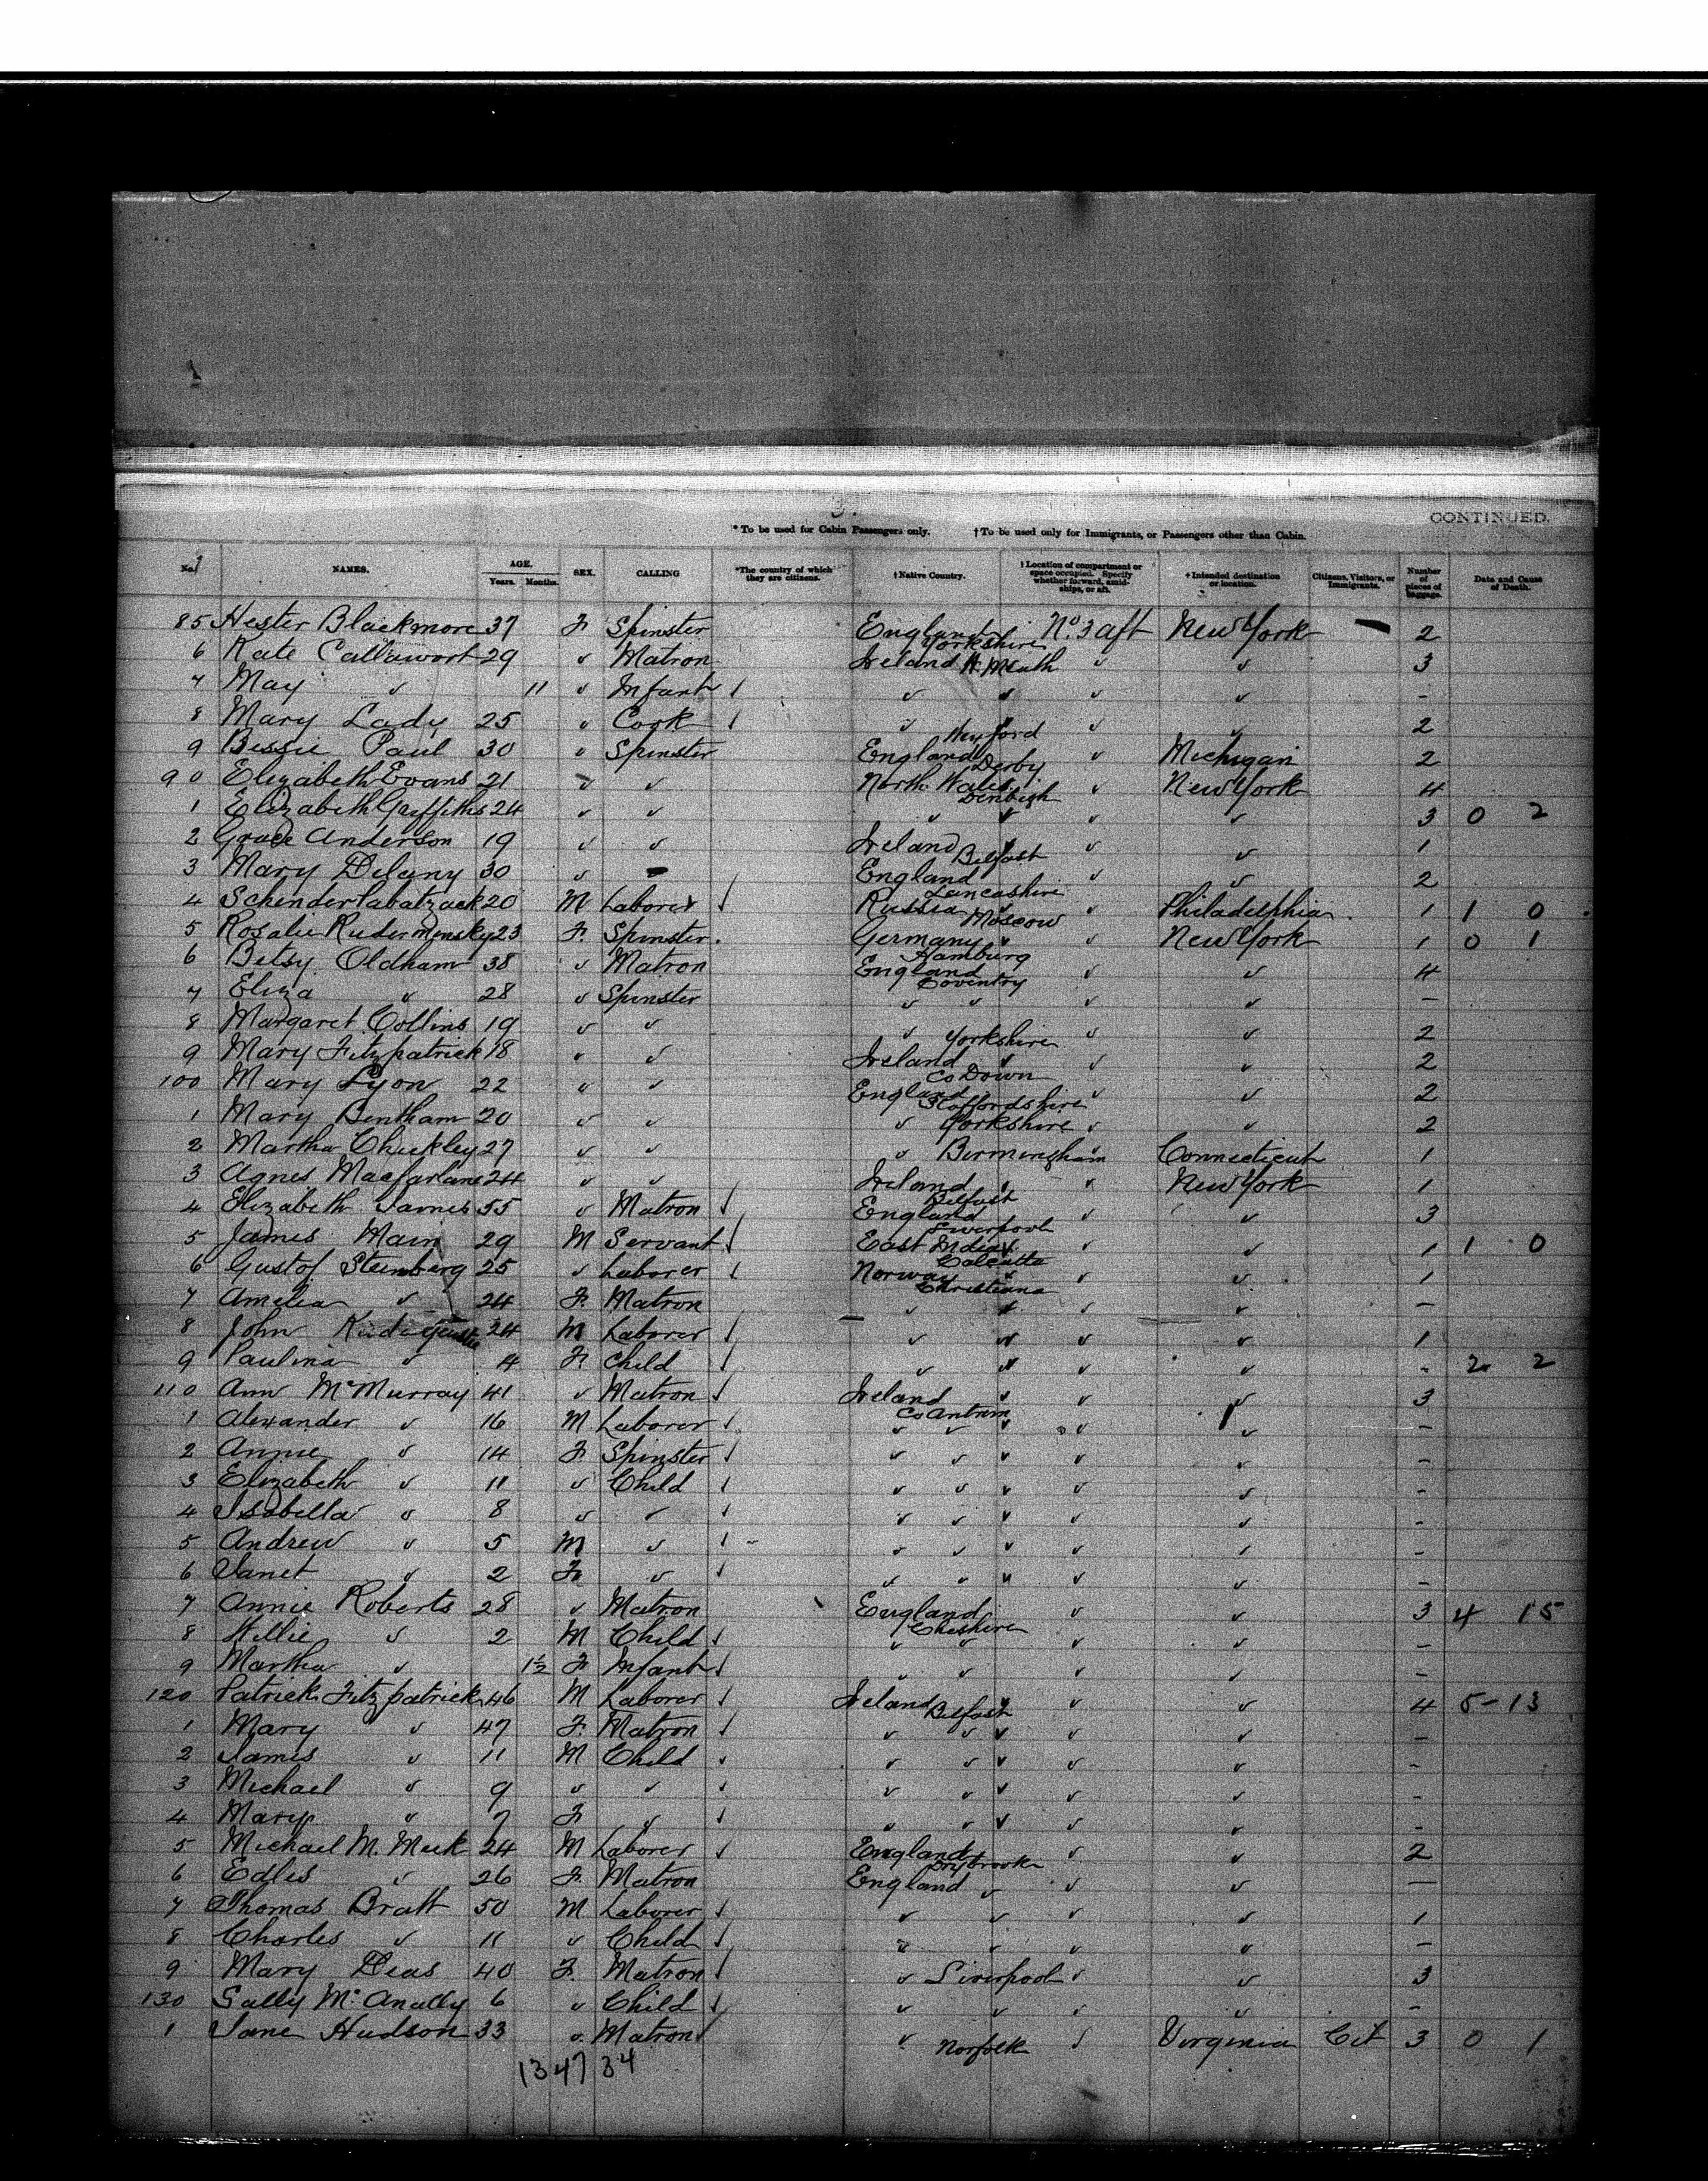 3.
CONTINUED.
*To be used for Cabin Passengers only. †To be used only for Immigrants, or Passengers other than Cabin.
No. NAMES. AGE. Years. Months. SEX. CALLING *The country of which they are citizens. †Native Country. †Location of compartment or space occupied. Specify whether forward, amidships, or aft. †Intended destination or location. Citizens, Visitors, or Immigrants. Number of pieces of baggage. Date and Cause of Death.
85 Hester Blackmore 37 F. Spinster England Yorkshire No. 3 aft New York — 2
6 Kate 29 " Matron Ireland W. Meath " " 3
7 May " 11 " Infant " " " " -
8 Mary Lady 25 " Cook " " " " 2
9 Bessie Paul 30 " Spinster England Derby " Michigan 2
90 Elizabeth Evans 21 " " North Wales Denbigh " New York 4
1 Elizabeth Griffiths 24 " " " " " " 3 0 2
2 Grace Anderson 19 " " Ireland Belfast " " 1
3 Mary Delany 30 " - England Lancashire " " 2
4 Schinder 20 M Laborer Russia Moscow " Philadelphia 1 1 0
5 Rosalie Ruderminsky 23 F. Spinster Germany Hamburg " New York 1 0 1
6 Betsy Oldham 38 " Matron England Coventry " " 4
7 Eliza " 28 " Spinster " " " " —
8 Margaret Collins 19 " " " Yorkshire " " 2
9 Mary Fitzpatrick 18 " " Ireland Co Down " " 2
100 Mary Lyon 22 " " England Staffordshire " " 2
1 Mary Bentham 20 " " " Yorkshire " " 2
2 Martha Chickley 27 " " " Birmingham Connecticut 1
3 Agnes Macfarlane 24 " " Ireland Belfast " New York 1
4 Elizabeth James 55 " Matron England Liverpool " " 3
5 James Main 29 M Servant East Indies Calcutta " " 1 1 0
6 Gustof Steinberg 25 " Laborer Norway Christiana " " 1
7 Amelia " 24 F. Matron " " " " —
8 John 24 M Laborer " " " " 1
9 Paulina " 4 F. Child " " " " - 2 2
110 Ann McMurray 41 " Matron Ireland Co Antrim " " 3
1 Alexander " 16 M Laborer " " " " -
2 Annie " 14 F Spinster " " " " -
3 Elizabeth " 11 " Child " " " " -
4 Isabella " 8 " " " " " " -
5 Andrew " 5 M " " " " " -
6 Janet " 2 F " " " " " -
7 Annie Roberts 28 " Matron England Cheshire " " 3 4 15
8 Willie " 2 M Child " " " " -
9 Martha " 1½ F Infant " " " " -
120 Patrick Fitzpatrick 46 M Laborer Ireland Belfast " " 4 5-13
1 Mary " 47 F. Matron " " " " -
2 James " 11 M Child " " " " -
3 Michael " 9 " " " " " " -
4 Mary " 7 F " " " " " -
5 Michael M. Meek 24 M Laborer England Drybrook " " 2
6 Edlis " 26 F. Matron England " " " —
7 Thomas Bratt 50 M Laborer " " " " 1
8 Charles " 11 " Child " " " " -
9 Mary Deas 40 F. Matron " Liverpool " " 3
130 Sally McAnally 6 " Child " " " " -
1 Jane Hudson 33 " Matron " Norfolk " Virginia Cit 3 0 1
1347 34